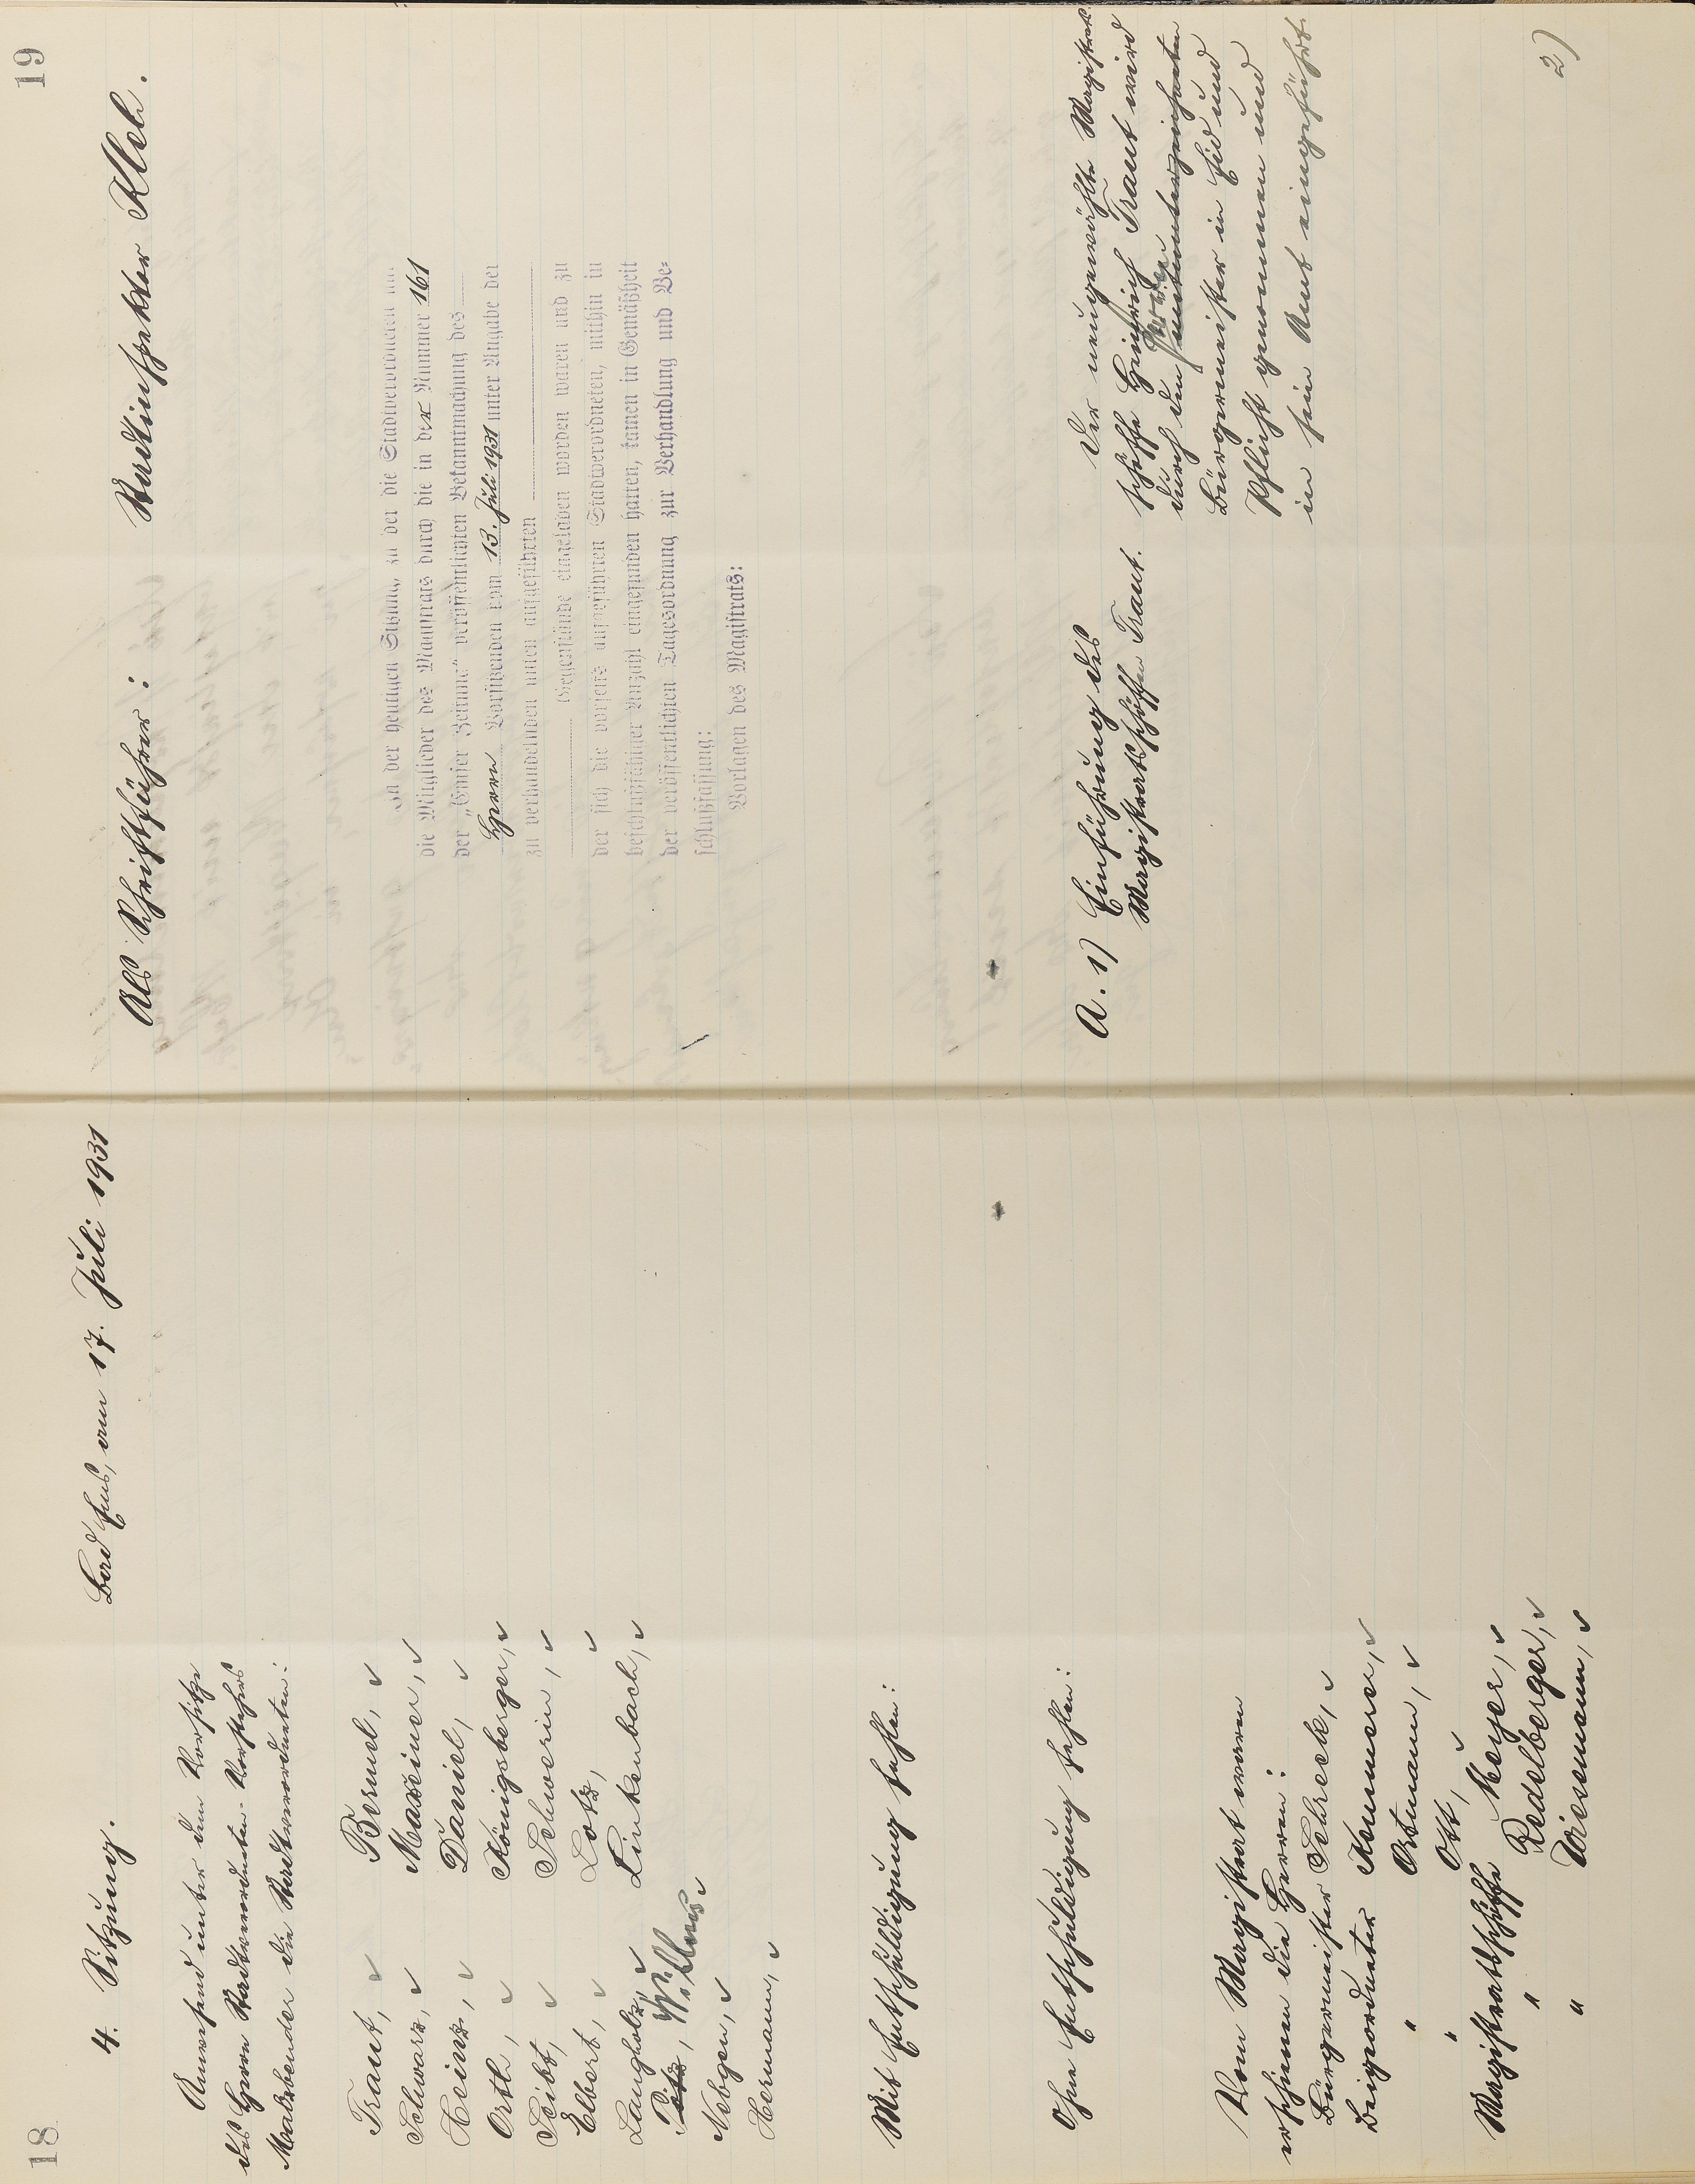 18
4. Sitzung.
Bad Ems, am 17. Juli 1931
Anwesend unter dem Vorsitze
des Herrn Stadtverordneten-Vorstehers
die Stadtverordneten:
Traut, ✓
Schwarz, ✓
Heinz, ✓
Orth, ✓
Seibt, ✓
Elbert, ✓
Langholz, ✓
Nebgen, ✓
Hermann, ✓
Bermel, ✓
Maxeiner, ✓
Daniel, ✓
Königsberger, ✓
Schwerin, ✓
Lotz, ✓
Linkenbach, ✓
Mit Entschuldigung fehlen:
Ohne Entschuldigung fehlen:
Vom Magistrat waren
erschienen die Herren:
Bürgermeister Schreck, ✓
Beigeordneter Kummerer, ✓
" Ortmann, ✓
" Ott, ✓
Magistratsschöffe Meyer, ✓
" Redelberger, ✓
" Wiesemann, ✓
19
Als Schriftführer: Stadtinspektor Kleh.
In der heutigen Sitzung, zu der die Stadtverordneten und
die Mitglieder des Magistrats durch die in der Nummer 161
der „Emser Zeitung“ veröffentlichten Bekanntmachung des
Herrn Vorsitzenden vom 13. Juli 1931 unter Angabe der
zu verhandelnden unten aufgeführten
Gegenstände eingeladen worden waren und zu
der sich die vorseits aufgeführten Stadtverordneten, mithin in
beschlußfähiger Anzahl eingefunden hatten, kamen in Gemäßheit
der veröffentlichten Tagesordnung zur Verhandlung und Be-
schlußfassung:
Vorlagen des Magistrats:
A. 1) Einführung des
Magistratsschöffen Traut.
Der neugewählte Magistrats
schöffe Heinrich Traut wird
durch den Herrn unterzeichneten
Bürgermeister in Eid und
Pflicht genommen und
in sein Amt eingeführt.
2)